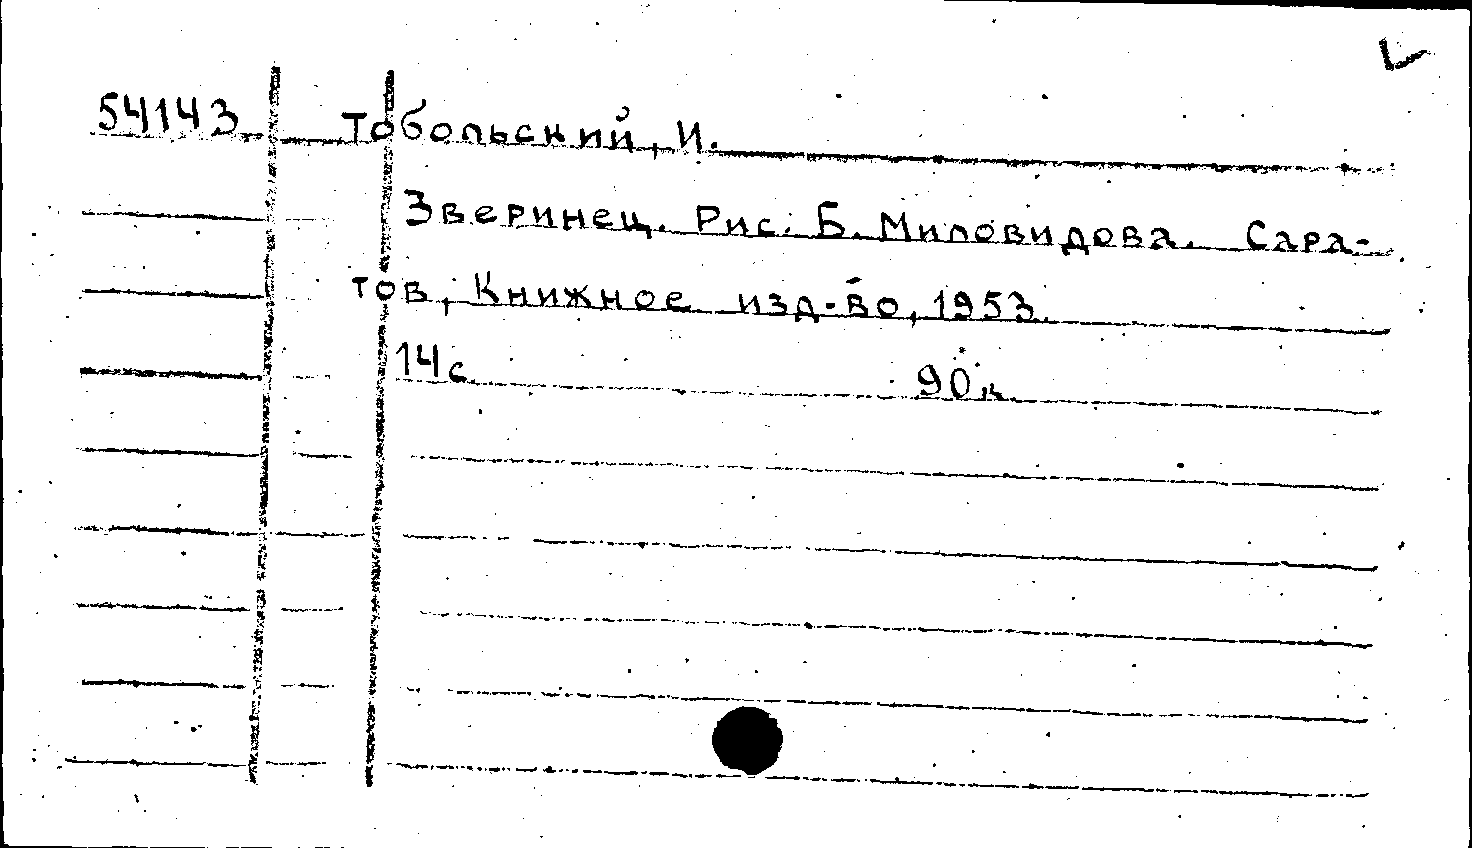 54143 Тобольский, И.
Зверинец. Рис. Б. Миловидова. Сара-
тов, Книжное изд-во, 1953.
14 с. 90 к.